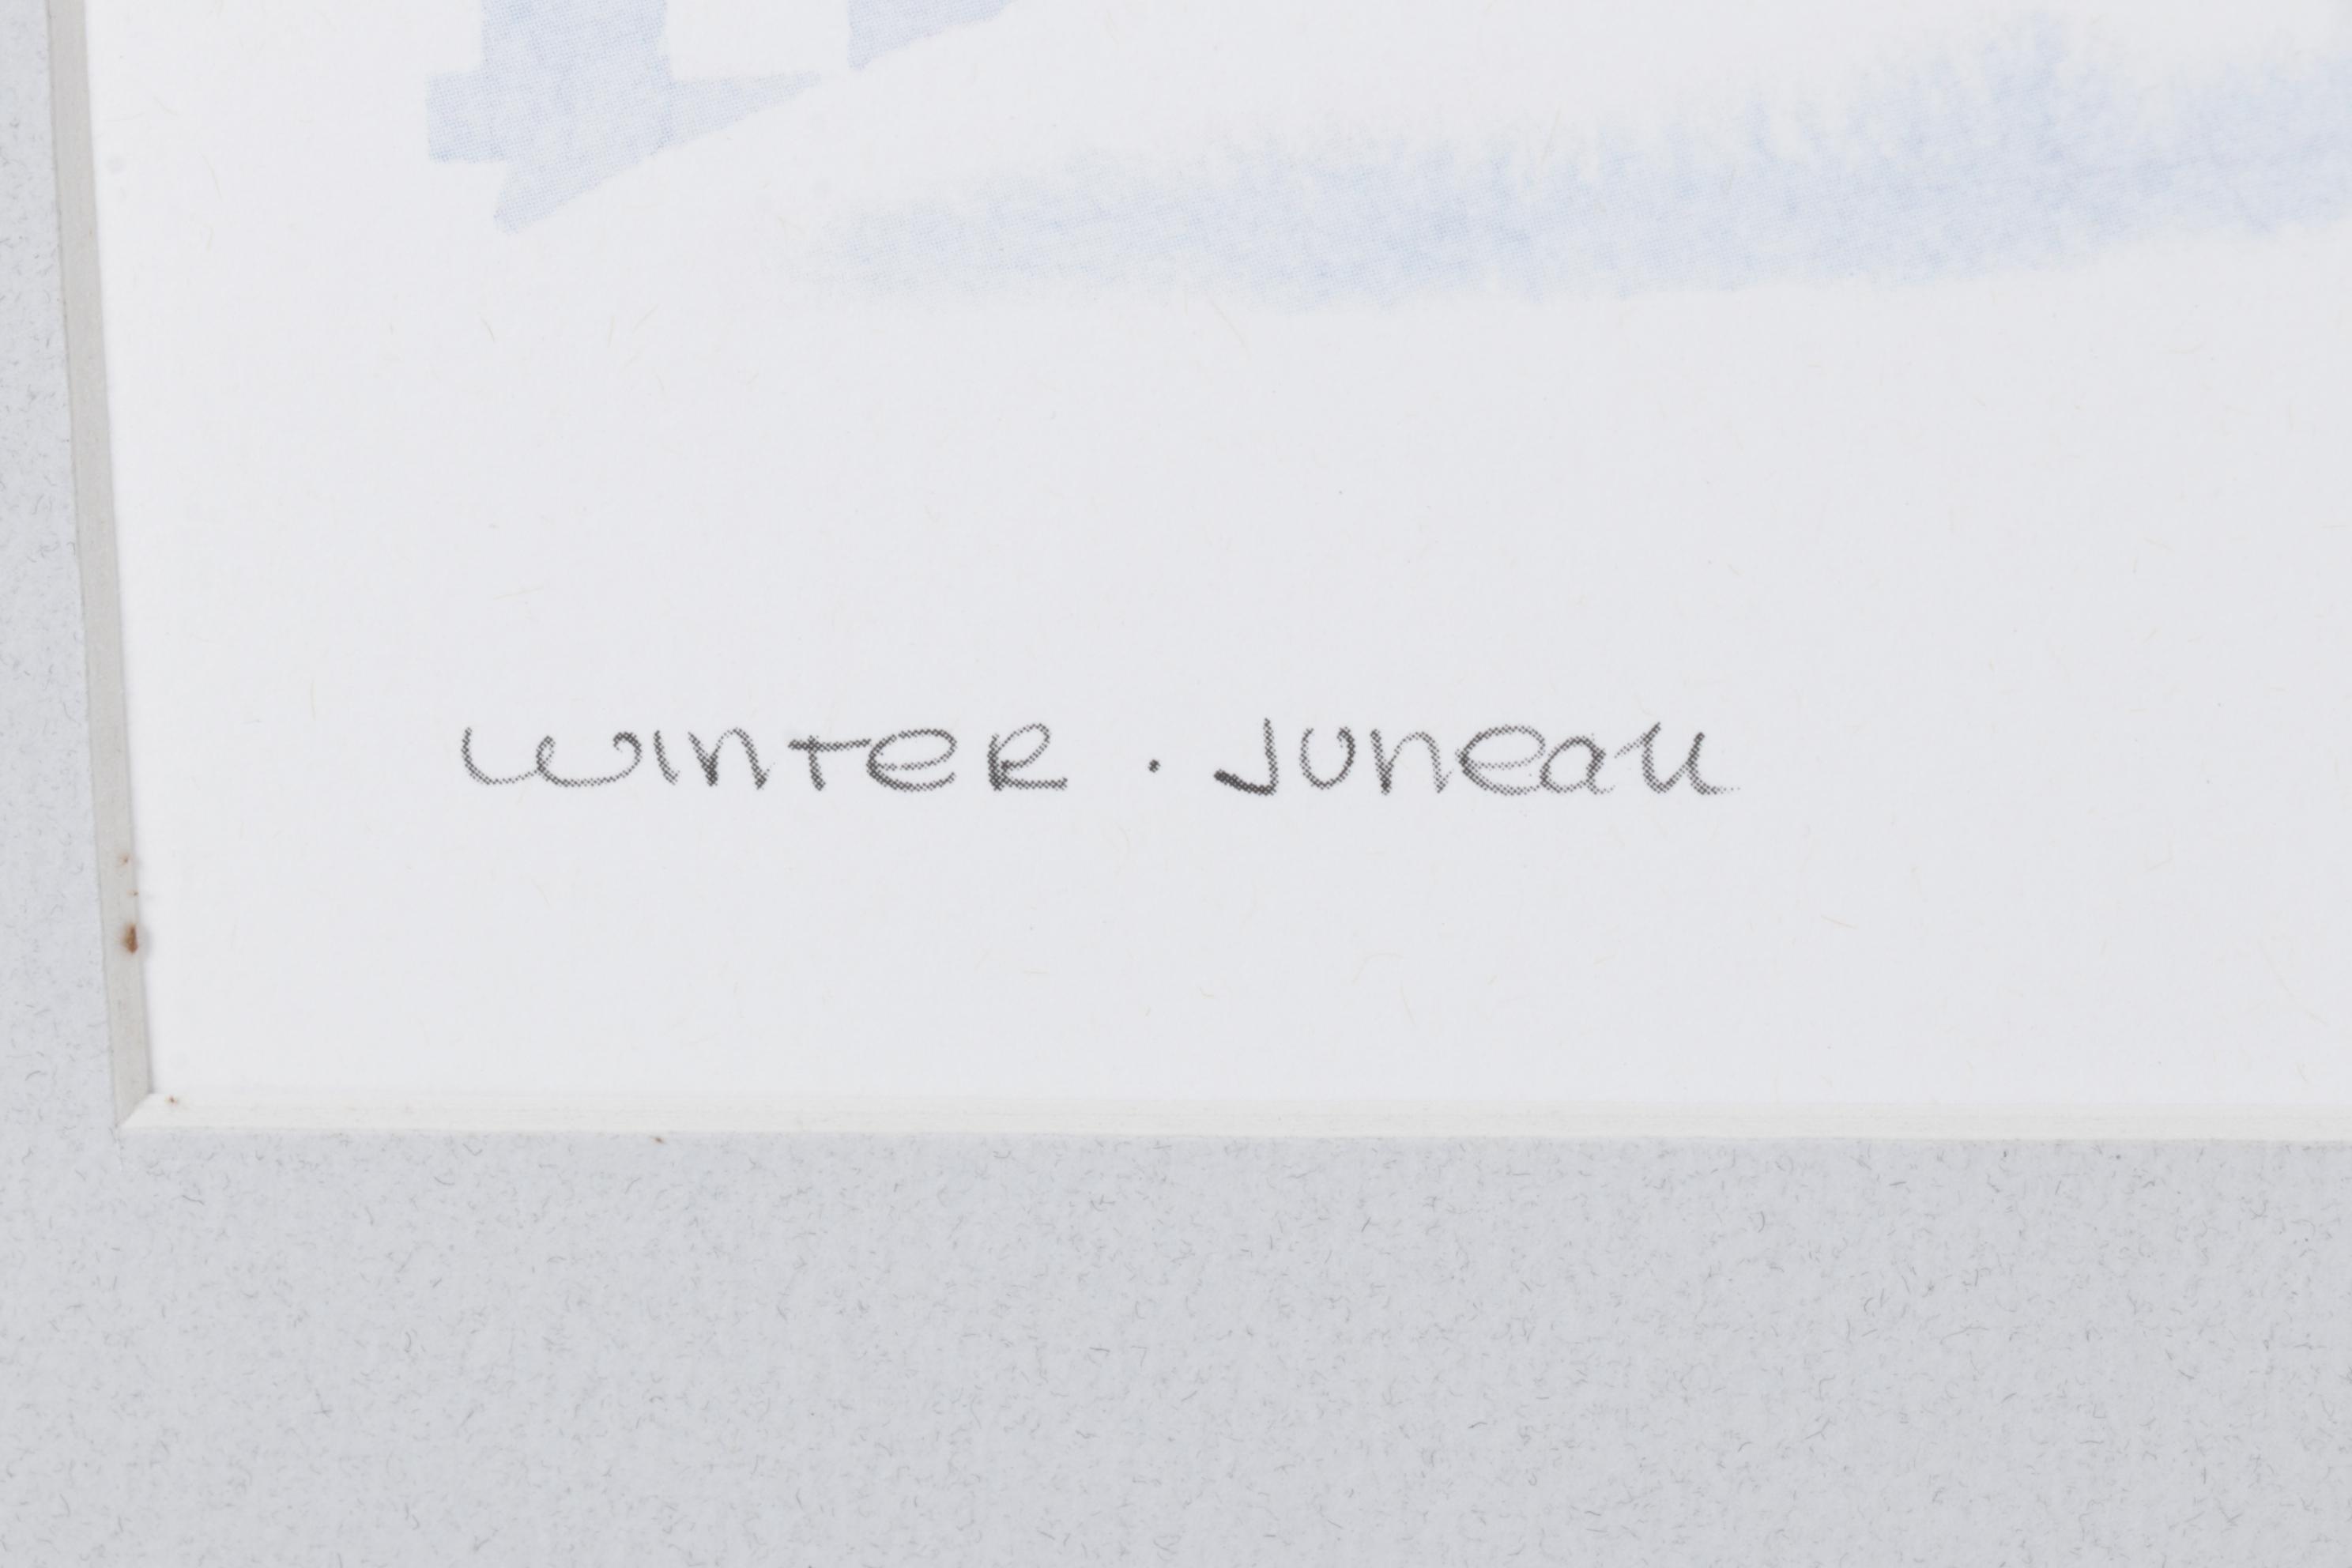 WINTER . JUNEAU